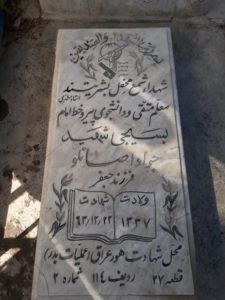 شهدا شمع محفل بشریتند
استاد مطهری
معلم متقی و دانشجوی پیرو خط امام
بسیجی شهید
جواد صانلو
فرزند جعفر
ولادت
شهادت
۱۳۳۷
۶۳/۱۲/۲۲
محل شهادت هور عراق (عملیات بدر)
قطعه ۲۷ ردیف ۱۱۴ شماره ۲